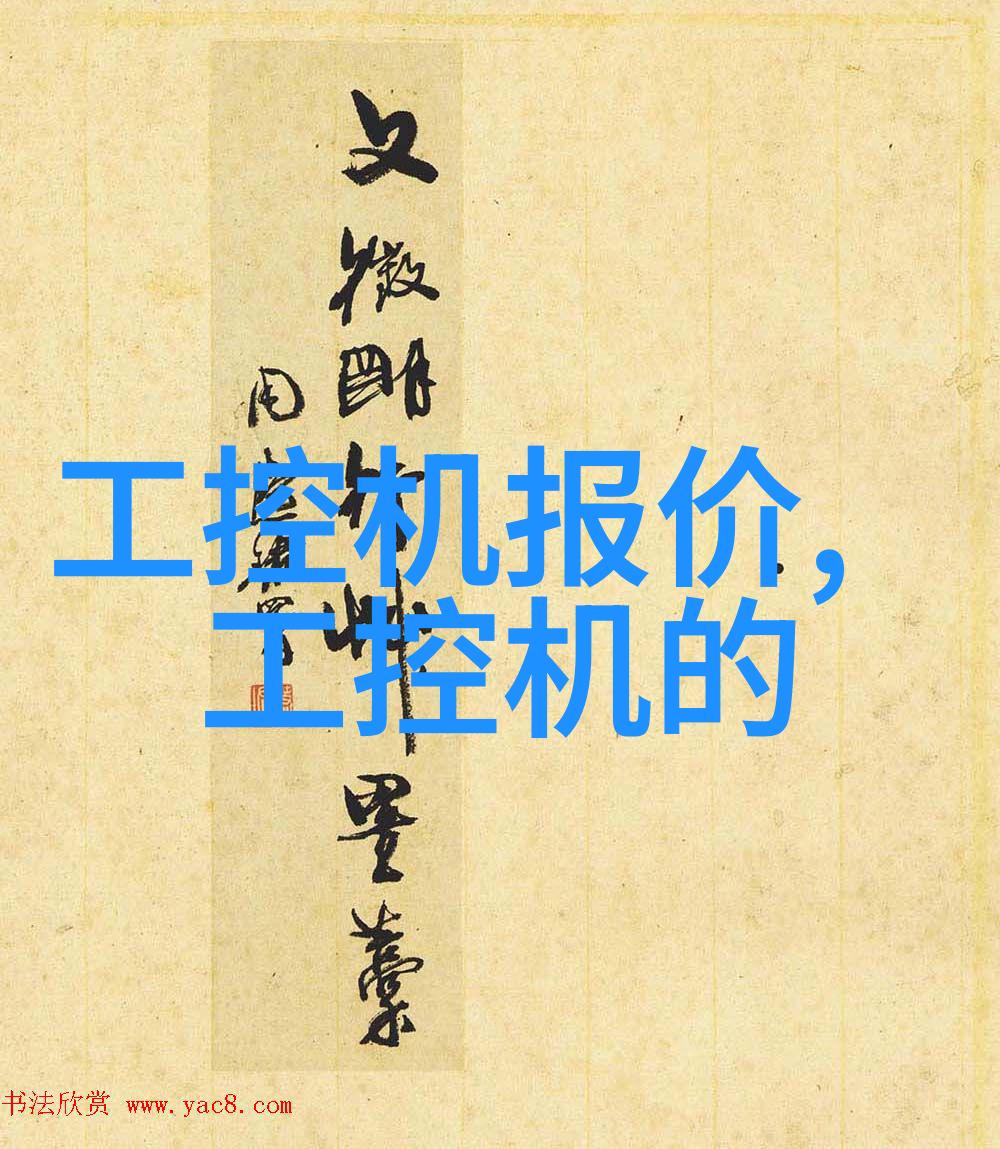 文徵明行艸墨藁
周
工控机报价，
工控机的
书法欣赏 www.yac8.com